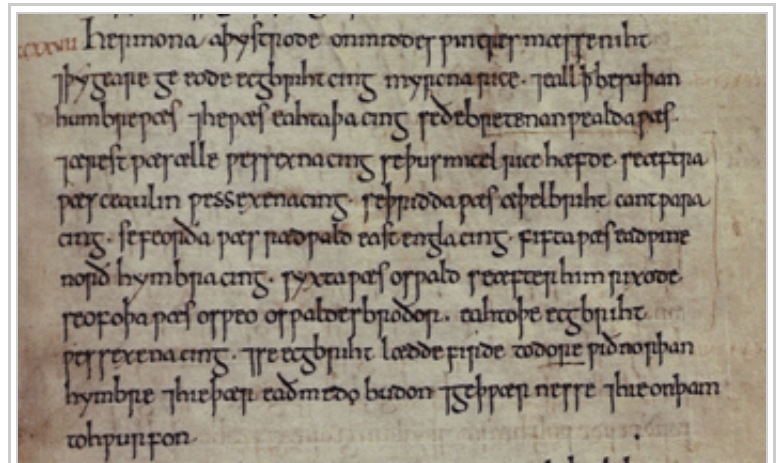 cccxxvii Her mona aþystrode on middes ƿintres mæsse niht
⁊ þy geare ge eode ecgbriht cing myrcna rice · ⁊ eall þ̄ be suþan
humbre ƿæs ⁊ he ƿæs eahtaþa cing se ðe bretenanƿealda ƿæs ·
⁊ ærest ƿæs ælle ƿessexna cing se þus micel rice hæfde · se æftra
ƿæs ceaulin ƿessexena cing · se þridda ƿæs æþelbriht cantƿara
cing · se feorða ƿæs rædƿald east engla cing · fifta ƿæs eadƿine
norð hymbra cing · syxta ƿæs osƿald se æfter him rixode
seofoþa ƿæs osƿeo osƿaldes broðor · eahtoþe ecgbriht
ƿessexena cing · ⁊ se ecgbriht lædde firde to dore ƿið norþan
hymbre ⁊ hie þær eaðmedo budon ⁊ geþƿærnesse ⁊ hie on þam
to hƿurfon